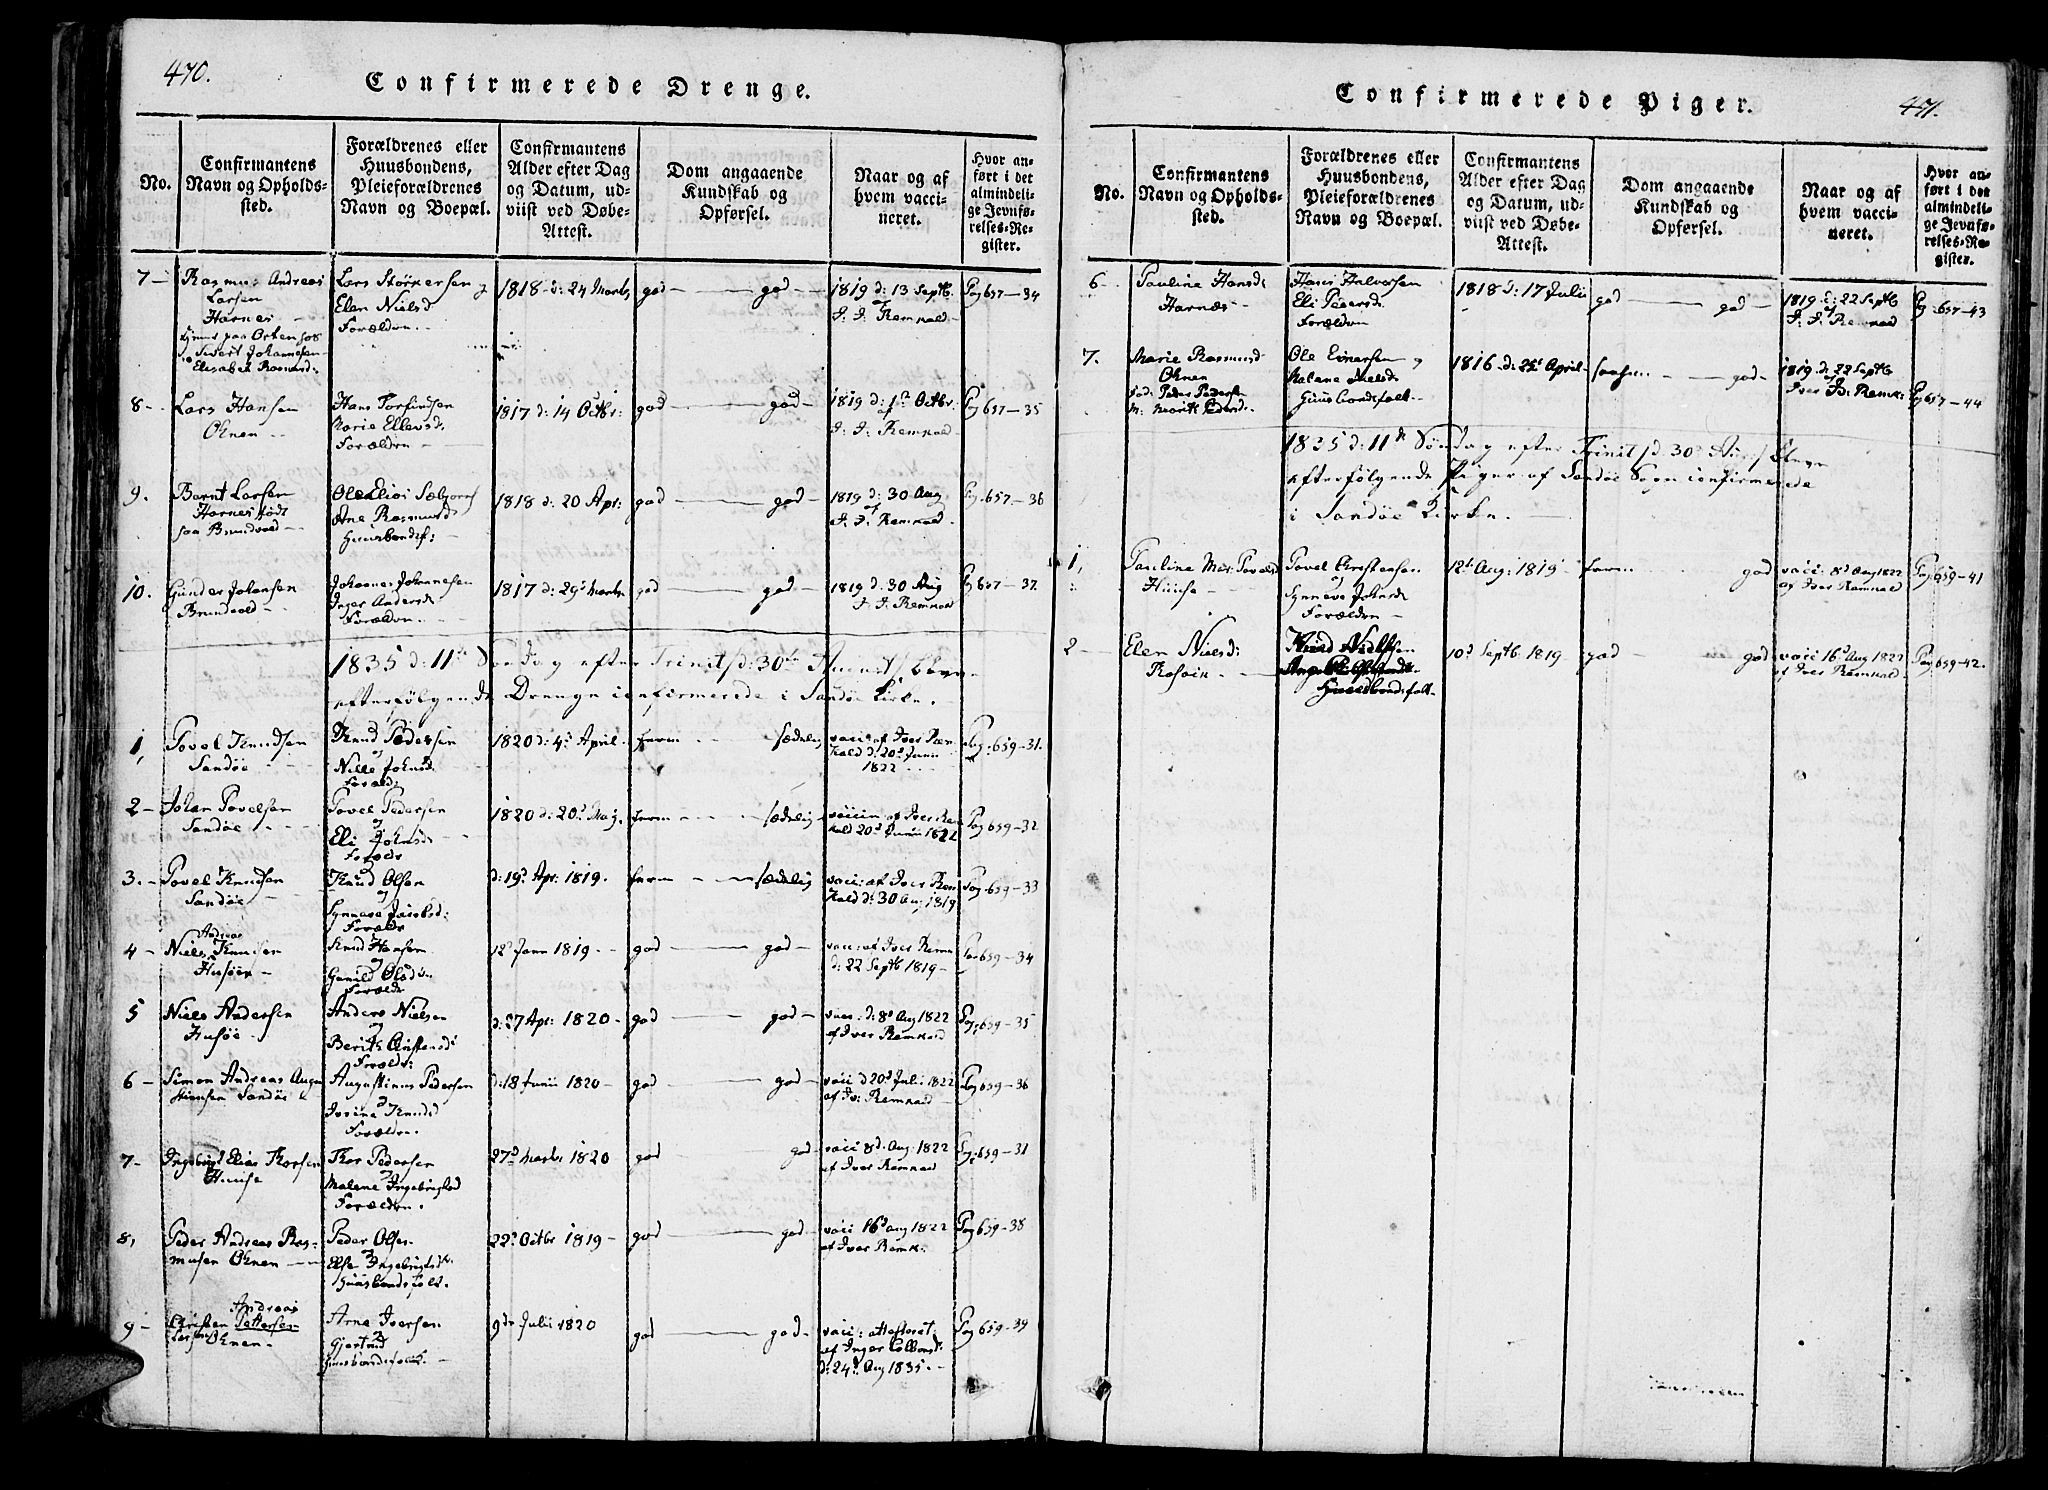 470.
Confirmerede Drenge.
No.
Confirmantens
Navn og Opholds-
sted.
Forældrenes eller
Huusbondens,
Pleieforældrenes
Navn og Boepæl.
Confirmantens
Alder efter Dag
og Datum, ud-
viist ved Døbe-
Attest.
Dom angaaende
Kundskab og
Opførsel.
Naar og af
hvem vacci-
neret.
Hvor an-
ført i det
almindeli-
ge Jevnfø-
relses-Re-
gister.
7 - Rasmus Andreas
Larsen
Harnes
Sivert Johannesen
Elisabeth Rasmusd:
Lars Størkersen
Elen Nielsd
Forældre
1818 d: 24 Martz
god - god
1819 d: 13 Septb
af
I. I. Remkald
Pag 657-34
8 - Lars Hansen
Ohnen
Hans Torfindsen
Marie Ellevsd:
Forældre
1817 d: 14 Octbr:
god god
1819 d: 1st Octbr
af
I. I. Remkald
Pag 657-35
9. Barnt Larsen
Harnes født
paa Brundvold
Ane Rasmusd
Huusbondsf:
1818 d: 20 Apr:
god god
1819 d: 30 Aug
af
I. I. Remkald
Pag 657-36
10. Gunder Johansen
Brundvold
Johannes Johannesen
Inger Andersd:
Forældre
1817 d: 29d Martz
god god
1819 d: 30 Aug
I. I. Remkald
Pag 657-37
1835 d: 11te Søndag efter Trinit/d: 30te August/ bleve
efterfølgende Drenge confirmerede i Sandøe Kirke.
1, Povel Knudsen
Sandøe
Knud Pedersen
og
Nille Johnsd:
Foræld:
1820 d: 4d April
frem sædelig
vacc: af Iver Rem-
kald d: 20d Junii
1822
Pag: 659-31.
2 - Johan Povelsen
Sandøe
Povel Pedersen
og
Eli Johnsd
Forældr
1820 d: 20d May.
frem sædelig
vaccin af Iver Rem
kald 20d Junii 1822
Pag 659-32
3. - Povel Knudsen
Sandøe
Knud Olsen
og
Synneve Jacobsd:
Forældr
d: 19d Apr: 1819.
frem sædelig
vacc: af Iver Rem
kald d: 30 Aug 1819
Pag 659-33
4 - Niels Andreas Knudsen
Husøen
Knud Hansen
og
Gunild Olsd
Forældr
12d Janu 1819
god god
vacc: af Iver Remk
d: 22 Septb 1819
Pag 659-34
5 Niels Andersen
Husøe
Anders Nielsen
og
Berith Anstensd:
Forældr:
d: 27 Apr: 1820
god god
vacc. d: 8d Aug 1822
af Iver Remkald
Pag: 659-35
6 - Simon Andreas Augu
stinusen Sandøe
Augustinus Pedersen
Forældre.
d: 18 Junii 1820
god god
vacc d 20d Juli 1822
af Iv: Remkald
Pag 659-36
7- Ingebrigt Elias Thorsen
Huuse
Thor Pedersen
Malene Ingebrigtsd
Forældre.
27d Martz 1820
god god
vacc 8d. Aug: 1822
af Iver Remkald
Pag: 659-31
8, Peder Andreas Ras-
musen Ohnen
Peder Olsen
Else Ingebrigtsd
Huusbondsfolk.
22d Octbr 1819
god god
vacc 16d aug 1822
af Iver Remk.
Pag 659-38
9 - Christen Andreas Pettersen
Larsen Ohnen
Arne Iversen
Gjertrud
Huusbondsfolk.
9de Julii 1820
god god
vacc: attesteret
af Inger
d: 24d Aug 1835.
Pag 659-39
Confirmerede Piger.
471.
No.
Confirmantens
Navn og Opholds-
sted.
Forældrenes eller
Huusbondens,
Pleieforældrenes
Navn og Boepæl.
Confirmantens
Alder efter Dag
og Datum, ud-
viist ved Døbe-
Attest.
Dom angaaende
Kundskab og
Opførsel.
Naar og af
hvem vacci-
neret.
Hvor an-
ført i det
almindeli-
ge Jevnfø-
relses-Re-
gister.
6 Pauline Hansd:
Harnæs
Hans Halvorsen
Eli Pedersd:
Forældre
1818 d: 17 Julii
god god
1819 d: 22 Septb
af
I. I. Remkald
Pg. 657-43
7. Marie Rasmusd
Ohnen
Fad: Peder Pedersen
M: Marit Pedersd.
Ole Evnersen
Malene Nielsd:
Huusbondsfolk.
1816 d: 22d April
god
1819 d: 22 Septb
Iver B. Remk:
Pg 657-44
1835 d: 11te Søndag efter Trinit/d: 30d Aug/ bleve
efterfølgende Piger af Sandøe Sogn confirmerede
i Sandøe Kirke.
1, Pauline Mar: Povelsd
Huuse
Povel Christensen
og
Synneve Johnsd:
Forældre
12d Aug: 1819
frem god
vacc: 8d Aug 1822
af Iver Remkald
Pag 659-41
2 Elen Nielsd:
Rosøin
Huusbondsfolk
10d Septb: 1819
god god
vacc 16d Aug 1822
af Iver Remkald
Pag 659-42.